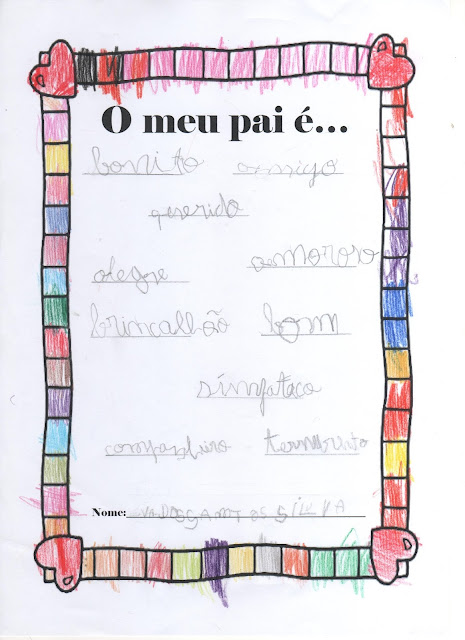 O meu pai é...
bonito amigo
querido
amoroso
alegre
brincalhão bom
simpataco
companheiro
Nome: SILVA